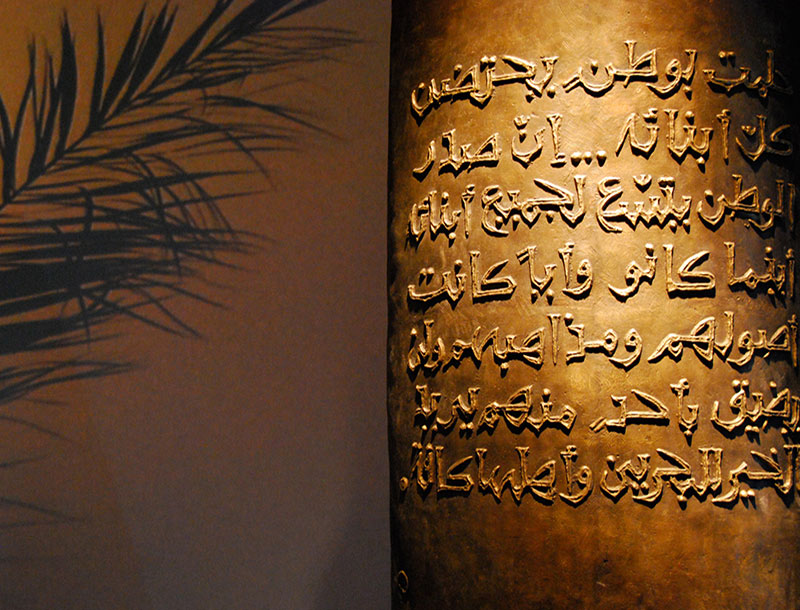 حلمت بوطنٍ يحتضن
كلّ أبنائه ...إنّ صدر
الوطن يتسّع لجميع أبنائه
أينما كانو وأياً كانت
أصولهم ومذاهبهم ولن
يضيق بأحدٍ منهم يريد
الخير للبحرين وأهلها كافة.